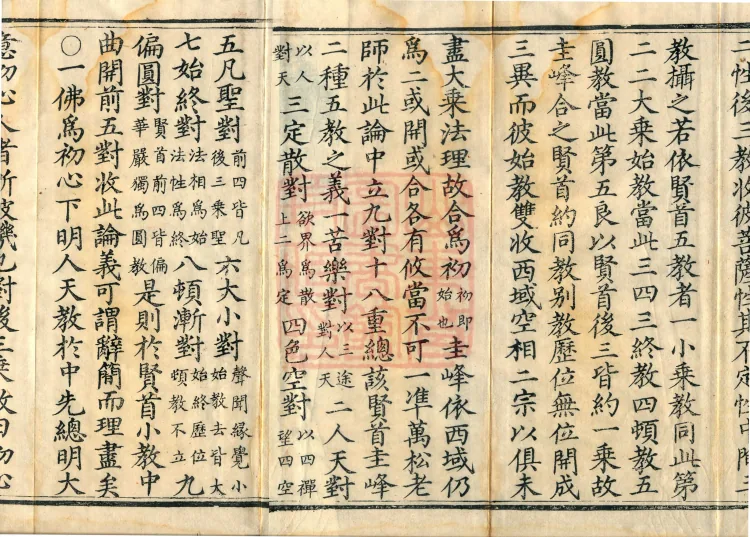 二性後三教收彼菩薩性其不定性中間二
教攝之若依賢首五教者一小乗教同此第
二二大乗始教當此三四三終教四頓教五
圓教當此第五良以賢首後三皆約一乗故
圭峰合之賢首約同教別教歷位無位開成
三異而彼始教雙收西域空相二宗以俱未
盡大乗法理故合爲初初即始也圭峰依西域仍
爲二或開或合各有攸當不可一準萬松老
師於此論中立九對十八重總該賢首圭峰
二種五教之義一苦樂對以三途對人天二人天對
以人對天三定散對欲界爲散上二爲定四色空對以四禪望四空
五凡聖對前四皆凡後三乗聖六大小對聲聞緣覺小始教去皆大
七始終對法相爲始法性爲終八頓漸對始終歷位頓教不立九
偏圓對賢首前四皆偏華嚴獨爲圓教是則於賢首小教中
曲開前五對收此論義可謂辭簡而理盡矣
○一佛爲初心下明人天教於中先總明大
意初心人者所被機也對後三乗故曰初心